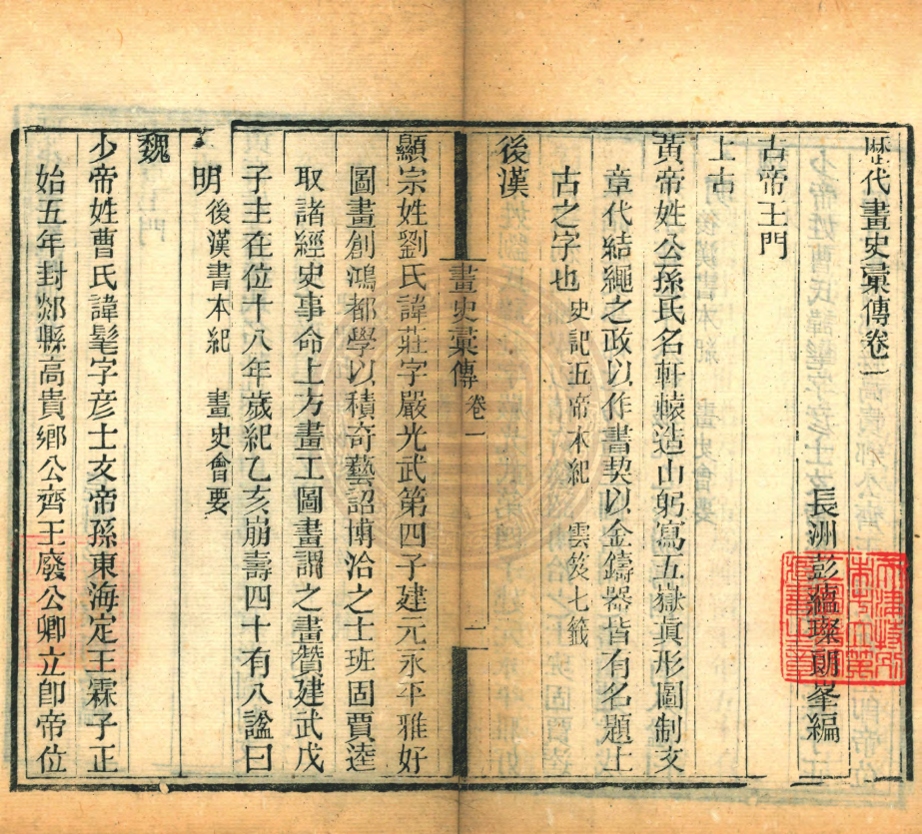 歷代畫史彙傳卷一
長洲彭蘊璨朗峯編
古帝王門
上古
黃帝姓公孫氏名軒轅造山躬寫五嶽眞形圖制文
章代結繩之政以作書契以金鑄器皆有名題上
古之字也 史記五帝本紀 雲笈七籤
後漢
畫史彙傳 卷一 一
顯宗姓劉氏諱莊字嚴光武第四子建元永平雅好
圖畫創鴻都學以積奇藝詔博洽之士班固賈逵
取諸經史事命上方畫工圖畫謂之畫贊建武戊
子主在位十八年歲紀乙亥崩壽四十有八諡曰
明 後漢書本紀 畫史會要
魏
少帝姓曹氏諱髦字彥士文帝孫東海定王霖子正
始五年封郯縣高貴鄉公齊王廢公卿立卽帝位